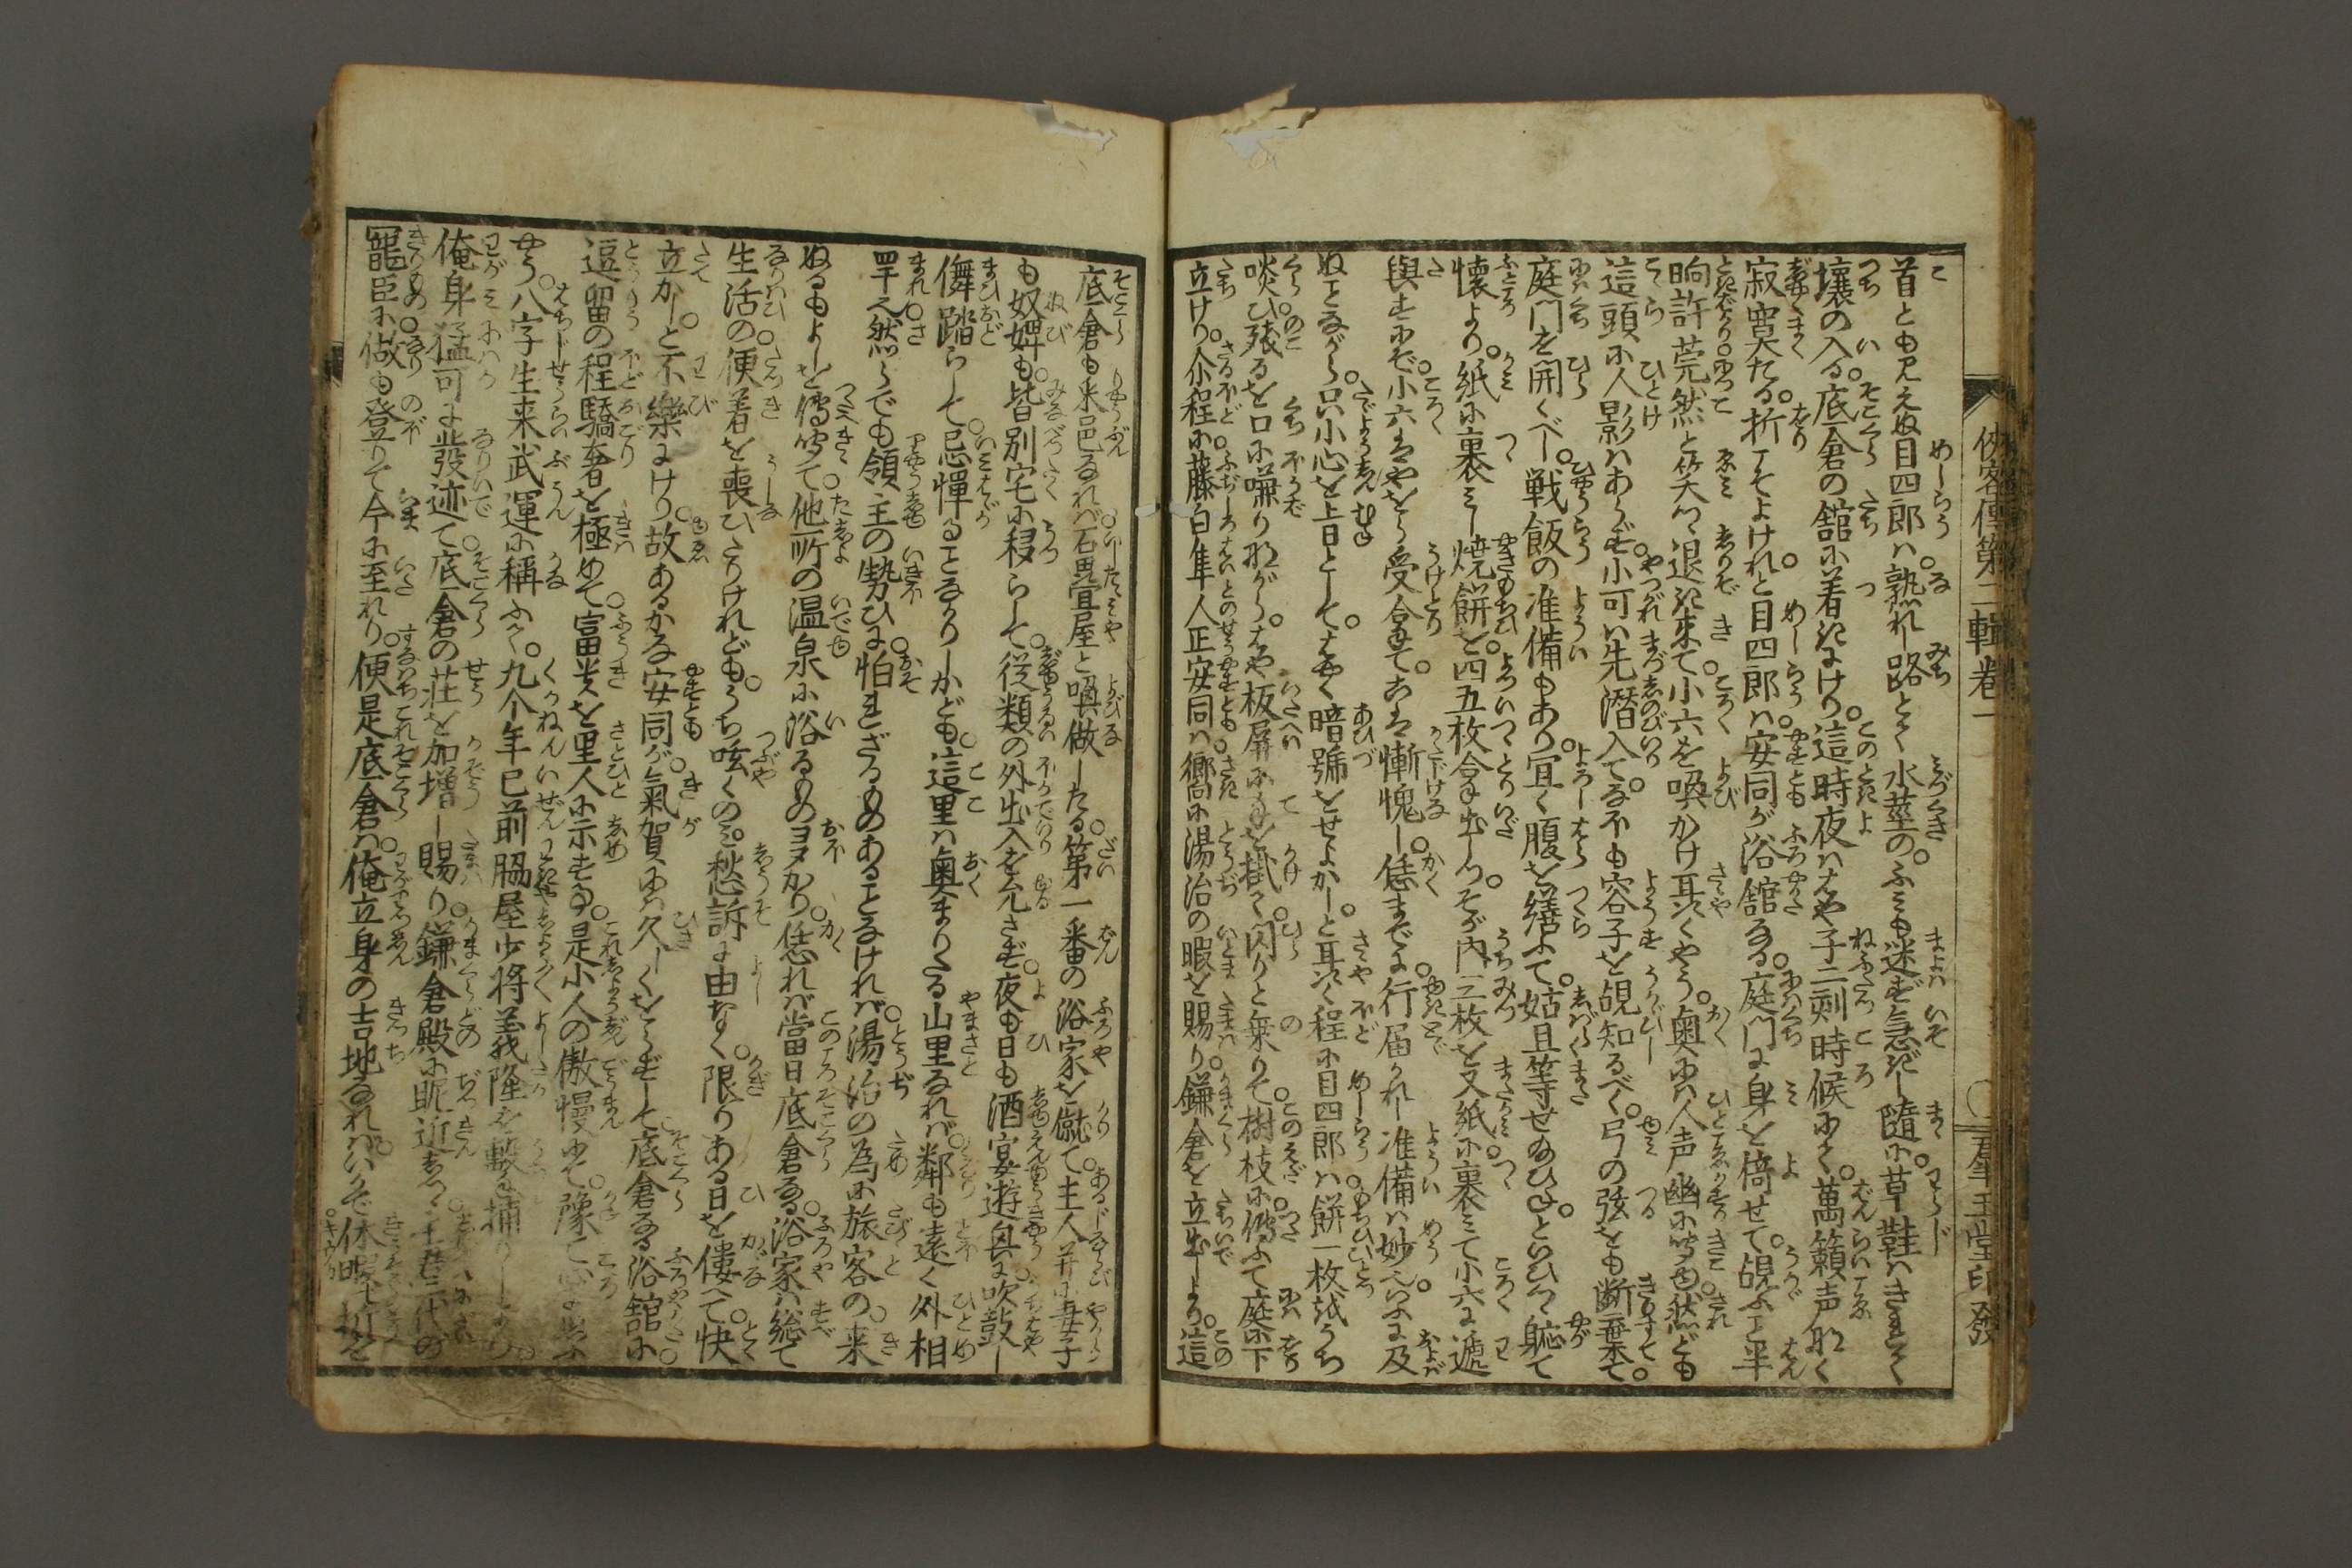 侠客傳第二輯卷一
群玉堂印發
首とも見えぬ目四郎ハ熟れし路とて水莖のふミも迷ハず急ぎし隨に草鞋ハきれて
壤の入る底倉の舘に着にけり這時夜ハはや子二刻時候にて萬籟声なく
寂寞たる折こそよけれと目四郎ハ安同が浴舘なる庭門に身を倚せて覘ふこと半
晌許莞然と笑つゝ退き来て小六を喚かけ耳語くやう奥にハ人声幽に聞ゆ然ども
這頭に人影ハあらず小可ハ先潜入てなほも容子を覘知るべく弓の弦をも断棄て
庭門を開くべし戦飯の准備もあり宜く腹を繕ふて姑且等せ給ひねといひつゝ軈て
懐より紙に裹ミし焼餅を四五枚拿出しつゝそが内三枚を又紙に裹ミて小六に逓
與すにぞ小六ハやをら受合せてこハ慚愧し恁までに行届かれし准備ハ妙也いふに及
ぬことながら只小心を上日としてはやく暗號をせよかしと耳語く程に目四郎ハ餅一枚打うち
啖ひ残るを口に噛りながらはや板屏に手を掛て閃りと乗りて樹枝に傳ふて庭へ下
立けり介程に藤白隼人正安同ハ嚮に湯治の暇を賜り鎌倉を立出しより這
底倉も釆邑なれバ石田宜屋と喚做したる第一番の浴家を僦て主人并に妻子
も奴婢も皆別宅に移らして従類の外出入を允さず夜も日も酒宴遊興吹鼓し
儛踏らして忌憚ることなかりしかども這里ハ奥まりたる山里なれバ鄰も遠く外相
罕也然らでも領主の勢ひに怕れざるものあることなけれバ湯治の為に旅客の来
ぬるもよしを傳聞て他所の温泉に浴るもの多かり恁れバ當日底倉なる浴家ハ総て
生活の便着を喪ひたりけれどもうち呟くのミ愁訴に由なく限りある日を僂て快
立かしと不樂にけり故あるかな安同が氣賀にハ久しくをらずして底倉なる浴舘に
逗留の程驕奢を極めて富貴を里人に示すなる是小人の傲慢にて豫て
やう八字生来武運に稱ふて九个年已前脇屋少將義隆を
俺身猛可に發迹て底倉の莊を加増し賜り鎌倉殿に眤近
寵臣に做も登りて今に至れり便是底倉ハ俺立身の吉地なれバ